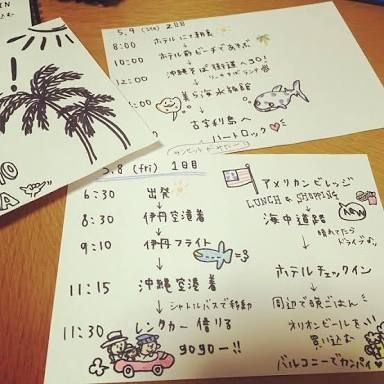 5.9 (sat) 2日目
8:00 ホテルにて朝食
ホテル前ビーチであそぶ
10:00
沖縄そば街道へGO!
12:00
美ら海水族館
古宇利島へ
ハートロック
5.8 (fri) 1日目
6:30 出発
8:30 伊丹空港着
9:10 伊丹フライト
11:15 沖縄空港着
シャトルバスで移動
11:30 レンタカー借りる
gogo〜!!
アメリカンビレッジ
LUNCH & SHOPPING
海中道路
晴れてたら
ドライブ
ホテルチェックイン
周辺で晩ごはん
オリオンビールを
買い込む
バルコニーでカンパイ